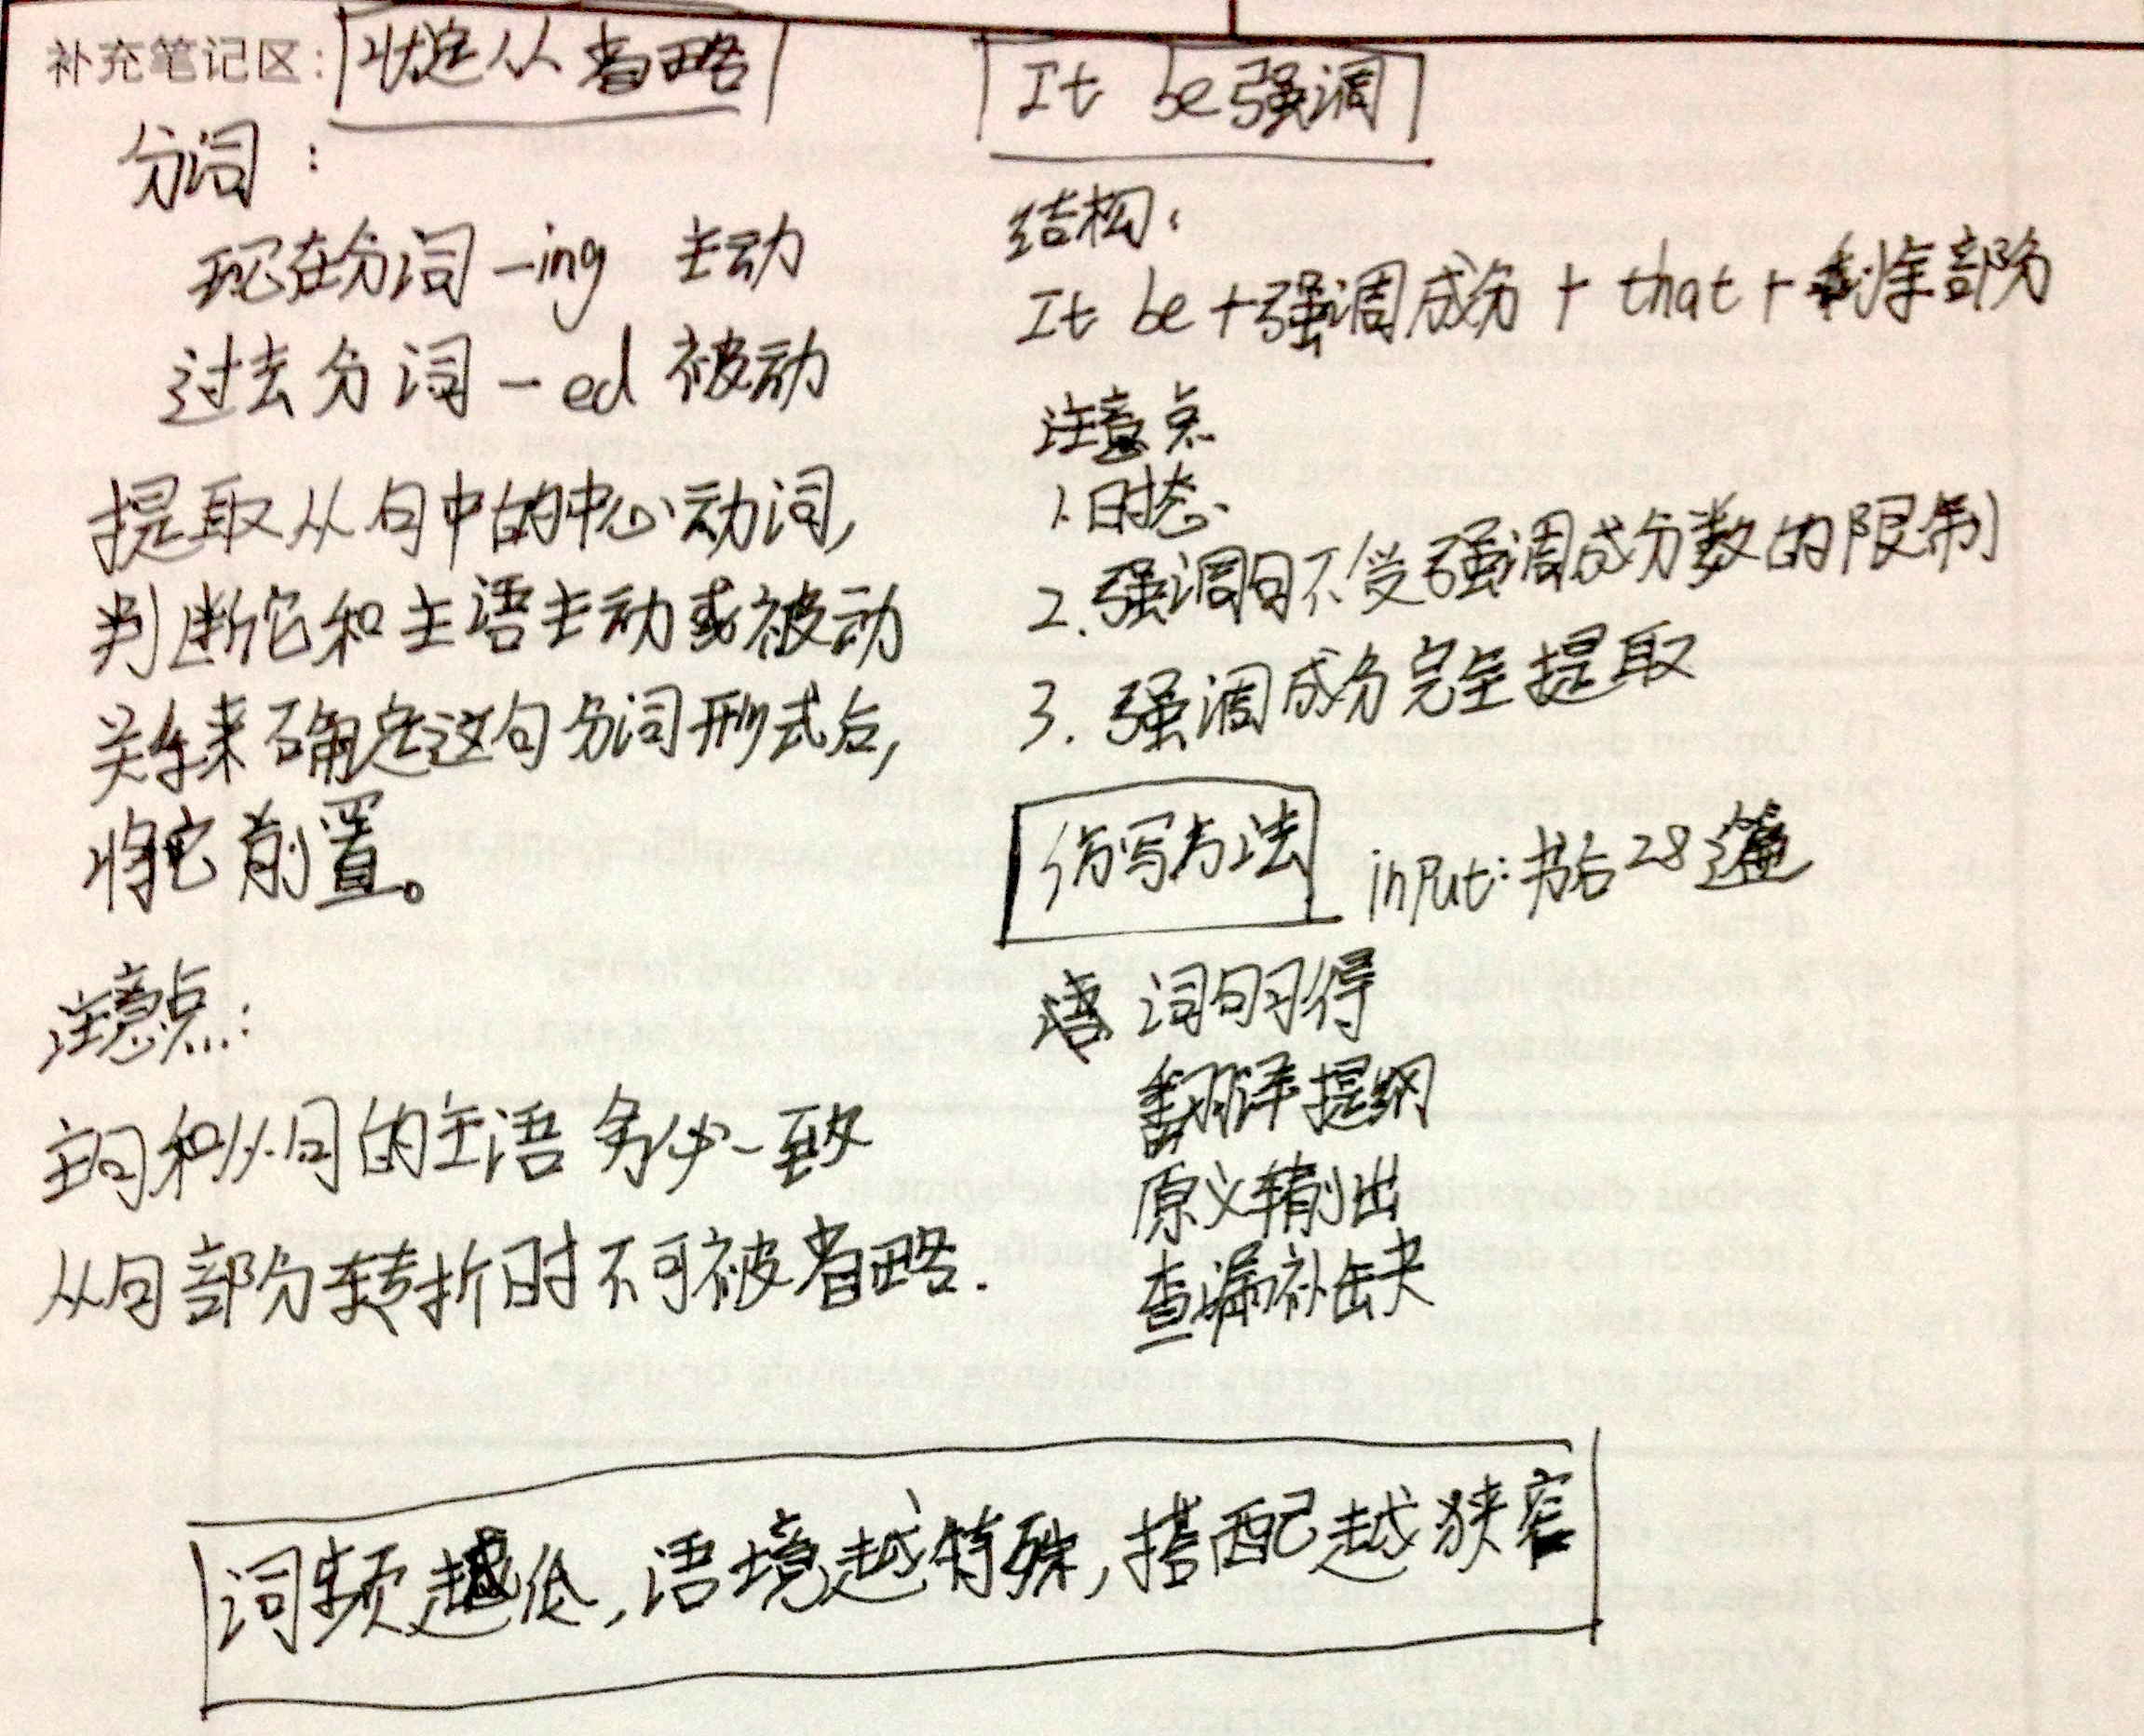 补充笔记区: 状定从省略
分词:
现在分词 -ing 主动
过去分词 -ed 被动
提取从句中的中心动词,
判断它和主语主动或被动
关系来确定这句分词形式后,
将它前置。
注意点:
主句和从句的主语务必一致
从句部分转折时不可被省略.
It be强调
结构:
It be+强调成分+that+剩余部分
注意点
1.时态
2.强调句不受强调成分数的限制
3.强调成分完全提取
仿写方法 input:书后28篇
词句习得
翻译提纲
原义输出
查漏补缺
词频越低,语境越特殊,搭配越狭窄